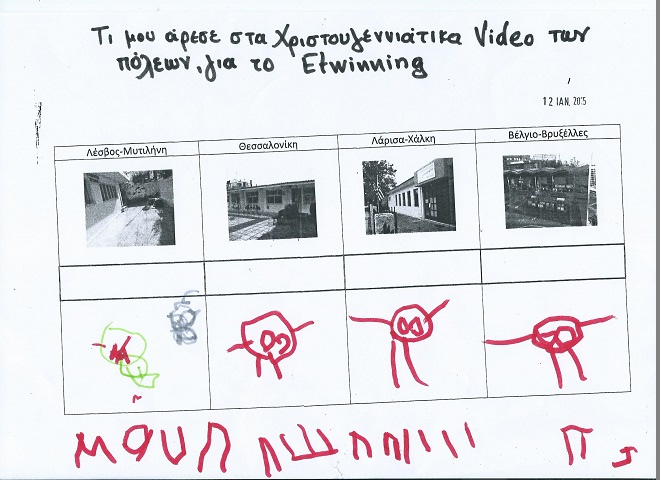 Τι μου άρεσε στα Χριστουγεννιάτικα Video των
πόλεων, για το Etwinning
12 ΙΑΝ, 2015
Λέσβος-Μυτιλήνη Θεσσαλονίκη Λάρισα-Χάλκη Βέλγιο-Βρυξέλλες